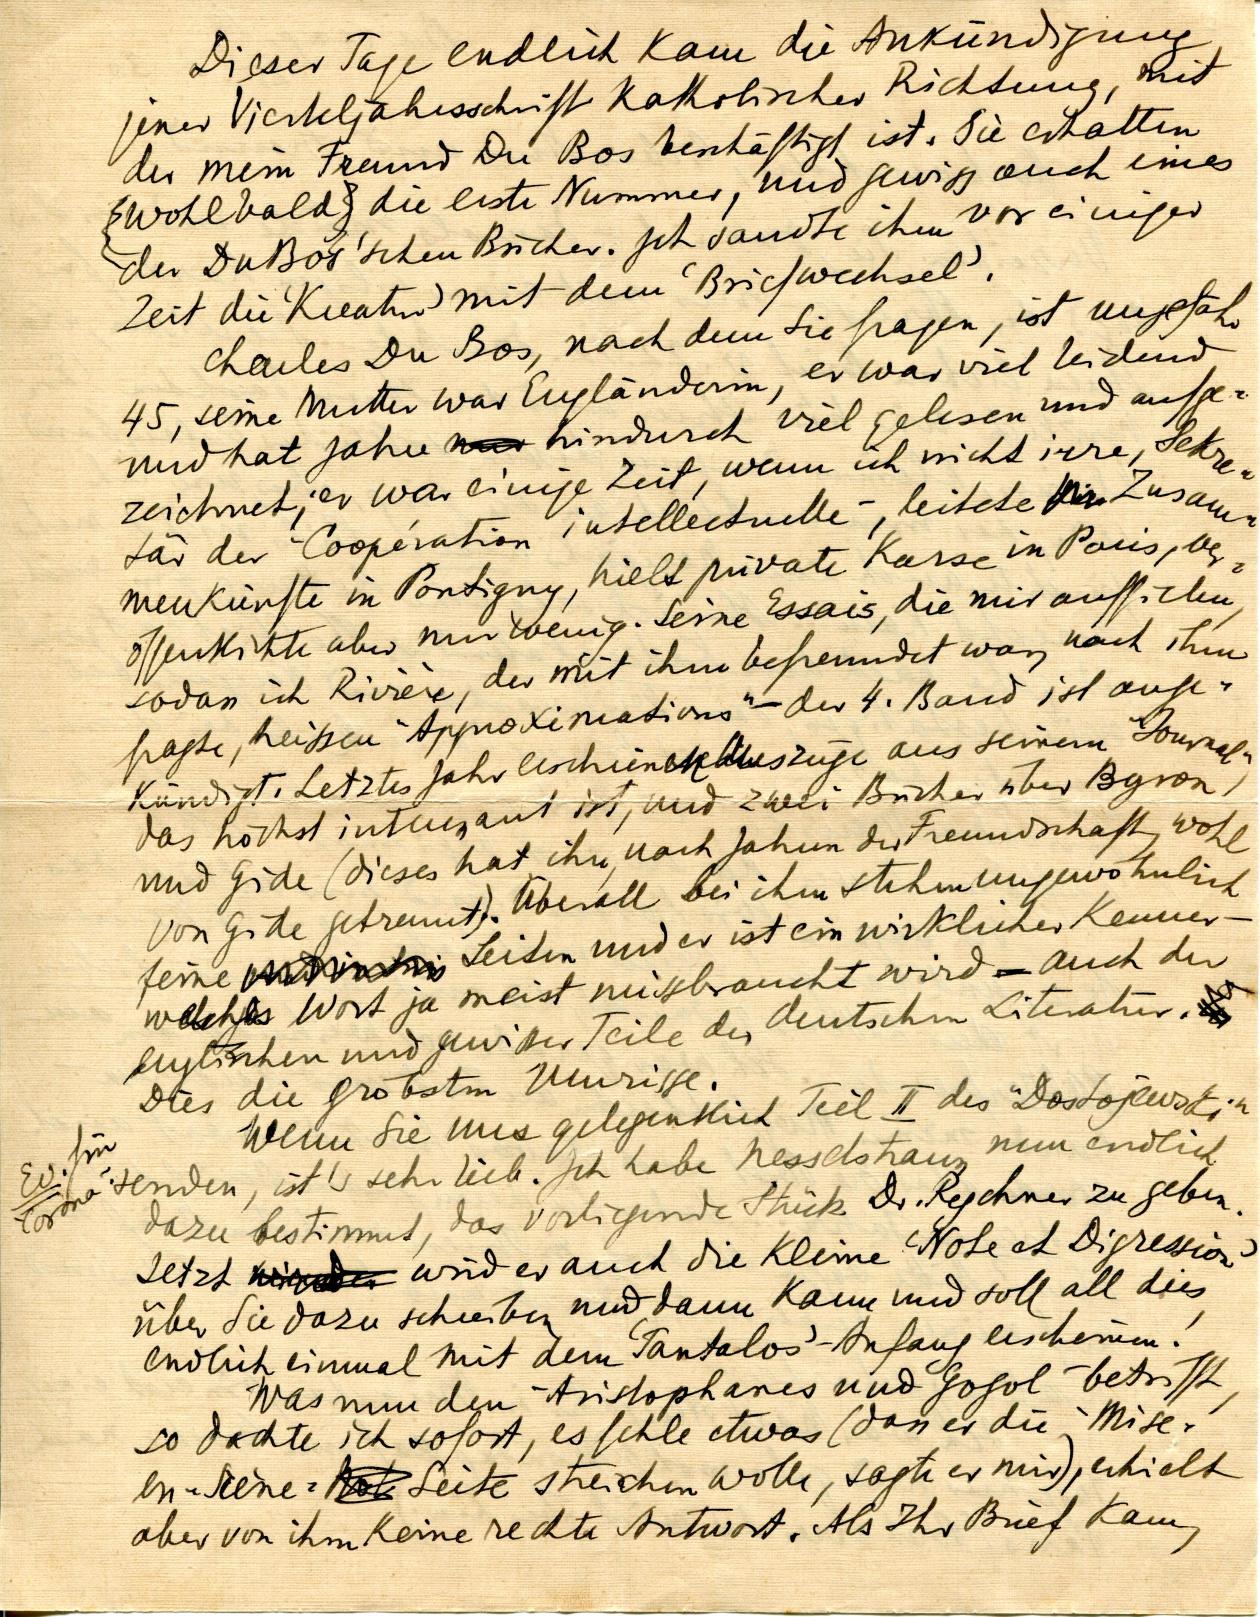 Dieser Tage endlich kam die Ankündigung
jener Vierteljahrsschrift katholischer Richtung, mit
der mein Freund Du Bos beschäftigt ist. Sie erhalten
{wohl bald} die erste Nummer, und gewiss auch eines
der Du Bos'schen Bücher. Ich sandte ihm vor einiger
Zeit die 'Kreatur' mit dem 'Briefwechsel'.
Charles Du Bos, nach dem Sie fragen, ist ungefähr
45, seine Mutter war Engländerin, er war viel leidend
und hat Jahre hindurch viel gelesen und aufge-
zeichnet; er war einige Zeit, wenn ich nicht irre, Sekre-
tär der "Coopération intellectuelle", leitete die Zusam-
menkünfte in Pontigny, hielt private Kurse in Paris, ver-
öffentlichte aber nur wenig. Seine Essais, die mir auffielen,
sodass ich Rivière, der mit ihm befreundet war, nach ihm
fragte, heissen "Approximations" – der 4. Band ist ange-
kündigt. Letztes Jahr erschienen Auszüge aus seinem "Journal",
das höchst interessant ist, und zwei Bücher über Byron
und Gide (dieses hat ihn, nach Jahren der Freundschaft, wohl
von Gide getrennt). Überall bei ihm stehen ungewöhnlich
feine Seiten und er ist ein wirklicher Kenner –
welches Wort ja meist missbraucht wird – auch der
englischen und gewisser Teile der deutschen Literatur.
Dies die gröbsten Umrisse.
Wenn Sie uns gelegentlich Teil II des "Dostojewski"
senden, ist's sehr lieb. Ich habe Nesselstrauss nun endlich
Ev. für
Corona
dazu bestimmt, das vorliegende Stück Dr. Rychner zu geben.
Jetzt wird er auch die kleine 'Note et Digression'
über Sie dazu schreiben und dann kann und soll all dies
endlich einmal mit dem 'Tantalos'-Anfang erscheinen!
Was nun den "Aristophanes und Gogol" betrifft,
so dachte ich sofort, es fehle etwas (dass er die "Mise-
en-Scène"-Seite streichen wolle, sagte er mir), erhielt
aber von ihm keine rechte Antwort. Als Ihr Brief kam,